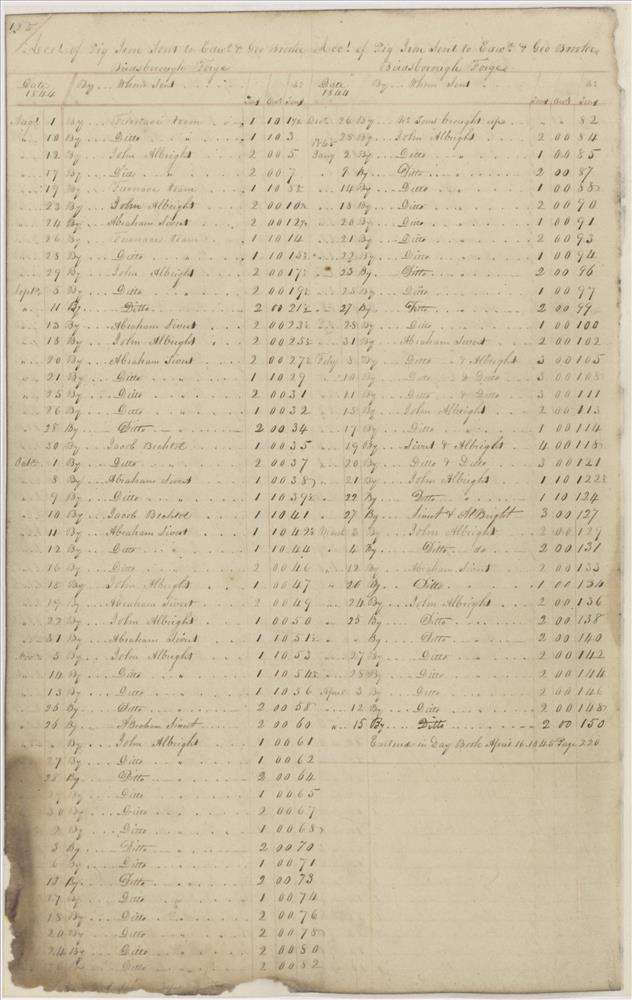 Acct. of Pig Iron Sent to Edwd. & Geo Brooke
Birdsborough Forge
Date 1844 By Whom Sent
Tons Cwt Tons
Augt 1 By Furnace team 1 10 1½
" 10 By Ditto " 1 10 3
" 12 By John Albright 2 00 5
" 17 By Ditto " 2 00 7
" 19 By Furnace team 1 10 8½
" 23 By John Albright 2 00 10½
" 24 By Abraham Sivert 2 00 12½
" 26 By Furnace team 1 10 14
" 28 By Ditto " 1 10 15½
" 29 By John Albright 2 00 17½
Septr 5 By Ditto " 2 00 19½
" 11 By Ditto 2 00 21½
" 13 By Abraham Sivert 2 00 23½
" 18 By John Albright 2 00 25½
" 20 By Abraham Sivert 2 00 27½
" 21 By Ditto 1 10 29
" 25 By Ditto " 2 00 31
" 26 By Ditto " 1 00 32
" 28 By Ditto " 2 00 34
" 30 By Jacob Bechtel 1 00 35
Octr 1 By Ditto " 2 00 37
8 By Abraham Sivert 1 00 38
9 By Ditto " 1 10 39½
10 By Jacob Bechtel 1 10 41
11 By Abraham Sivert 1 10 42½
12 By Ditto " 1 10 44
16 By Ditto " 2 00 46
18 By John Albright 1 00 47
19 By Abraham Sivert 2 00 49
22 By John Albright 1 00 50
31 By Abraham Sivert 1 10 51½
Novr 5 By John Albright 1 10 53
14 By Ditto " 1 10 54½
15 By Ditto " 1 10 56
25 By Ditto " 2 00 58
26 By Abraham Sivert 2 00 60
" By John Albright 1 00 61
27 By Ditto 1 00 62
28 By Ditto 2 00 64
By Ditto 1 00 65
30 By Ditto 2 00 67
2 By Ditto 1 00 68
3 By Ditto 2 00 70
6 By Ditto 1 00 71
13 By Ditto 2 00 73
17 By Ditto 1 00 74
18 By Ditto 2 00 76
20 By Ditto 2 00 78
24 By Ditto 2 00 80
By Ditto 2 00 82
Acct. of Pig Iron Sent to Edwd. & Geo Brooke
Birdsborough Forge
Date 1844 By Whom Sent
Tons Cwt Tons
Decr 26 By Wt Tons brought up " " 82
" 28 By John Albright 2 00 84
1845
Jany 2 By Ditto " 1 00 85
" 9 By Ditto " 2 00 87
" 14 By Ditto " 1 00 88
" 18 By Ditto 2 00 90
" 20 By Ditto 1 00 91
" 21 By Ditto 2 00 93
" 22 By Ditto " 1 00 94
" 23 By Ditto " 2 00 96
" 25 By Ditto 1 00 97
" 27 By Ditto " 2 00 99
" 28 By Ditto 1 00 100
31 By Abraham Sivert 2 00 102
Feby By Ditto & Albright 3 00 105
10 By Ditto & Ditto 3 00 108
11 By Ditto & Ditto 3 00 111
13 By John Albright 2 00 113
17 By Ditto " 1 00 114
" 19 By Sivert & Albright 4 00 118
" 20 By Ditto & Ditto 3 00 121
" 21 By John Albright 1 10 122½
" 22 By Ditto " 1 10 124
" 27 By Sivert & Albright 3 00 127
March 3 By John Albright 2 00 129
" 4 By Ditto do 2 00 131
" 12 By Abraham Sivert 2 00 133
" 20 By Ditto 1 00 134
" 24 By John Albright 2 00 136
" 25 By Ditto " 2 00 138
" " By Ditto " 2 00 140
" 27 By Ditto " 2 00 142
" 28 By Ditto 2 00 144
April 3 By Ditto 2 00 146
" 12 By Ditto 2 00 148
" 15 By Ditto 2 00 150
Entered in Day Book April 16. 1845 Page 226